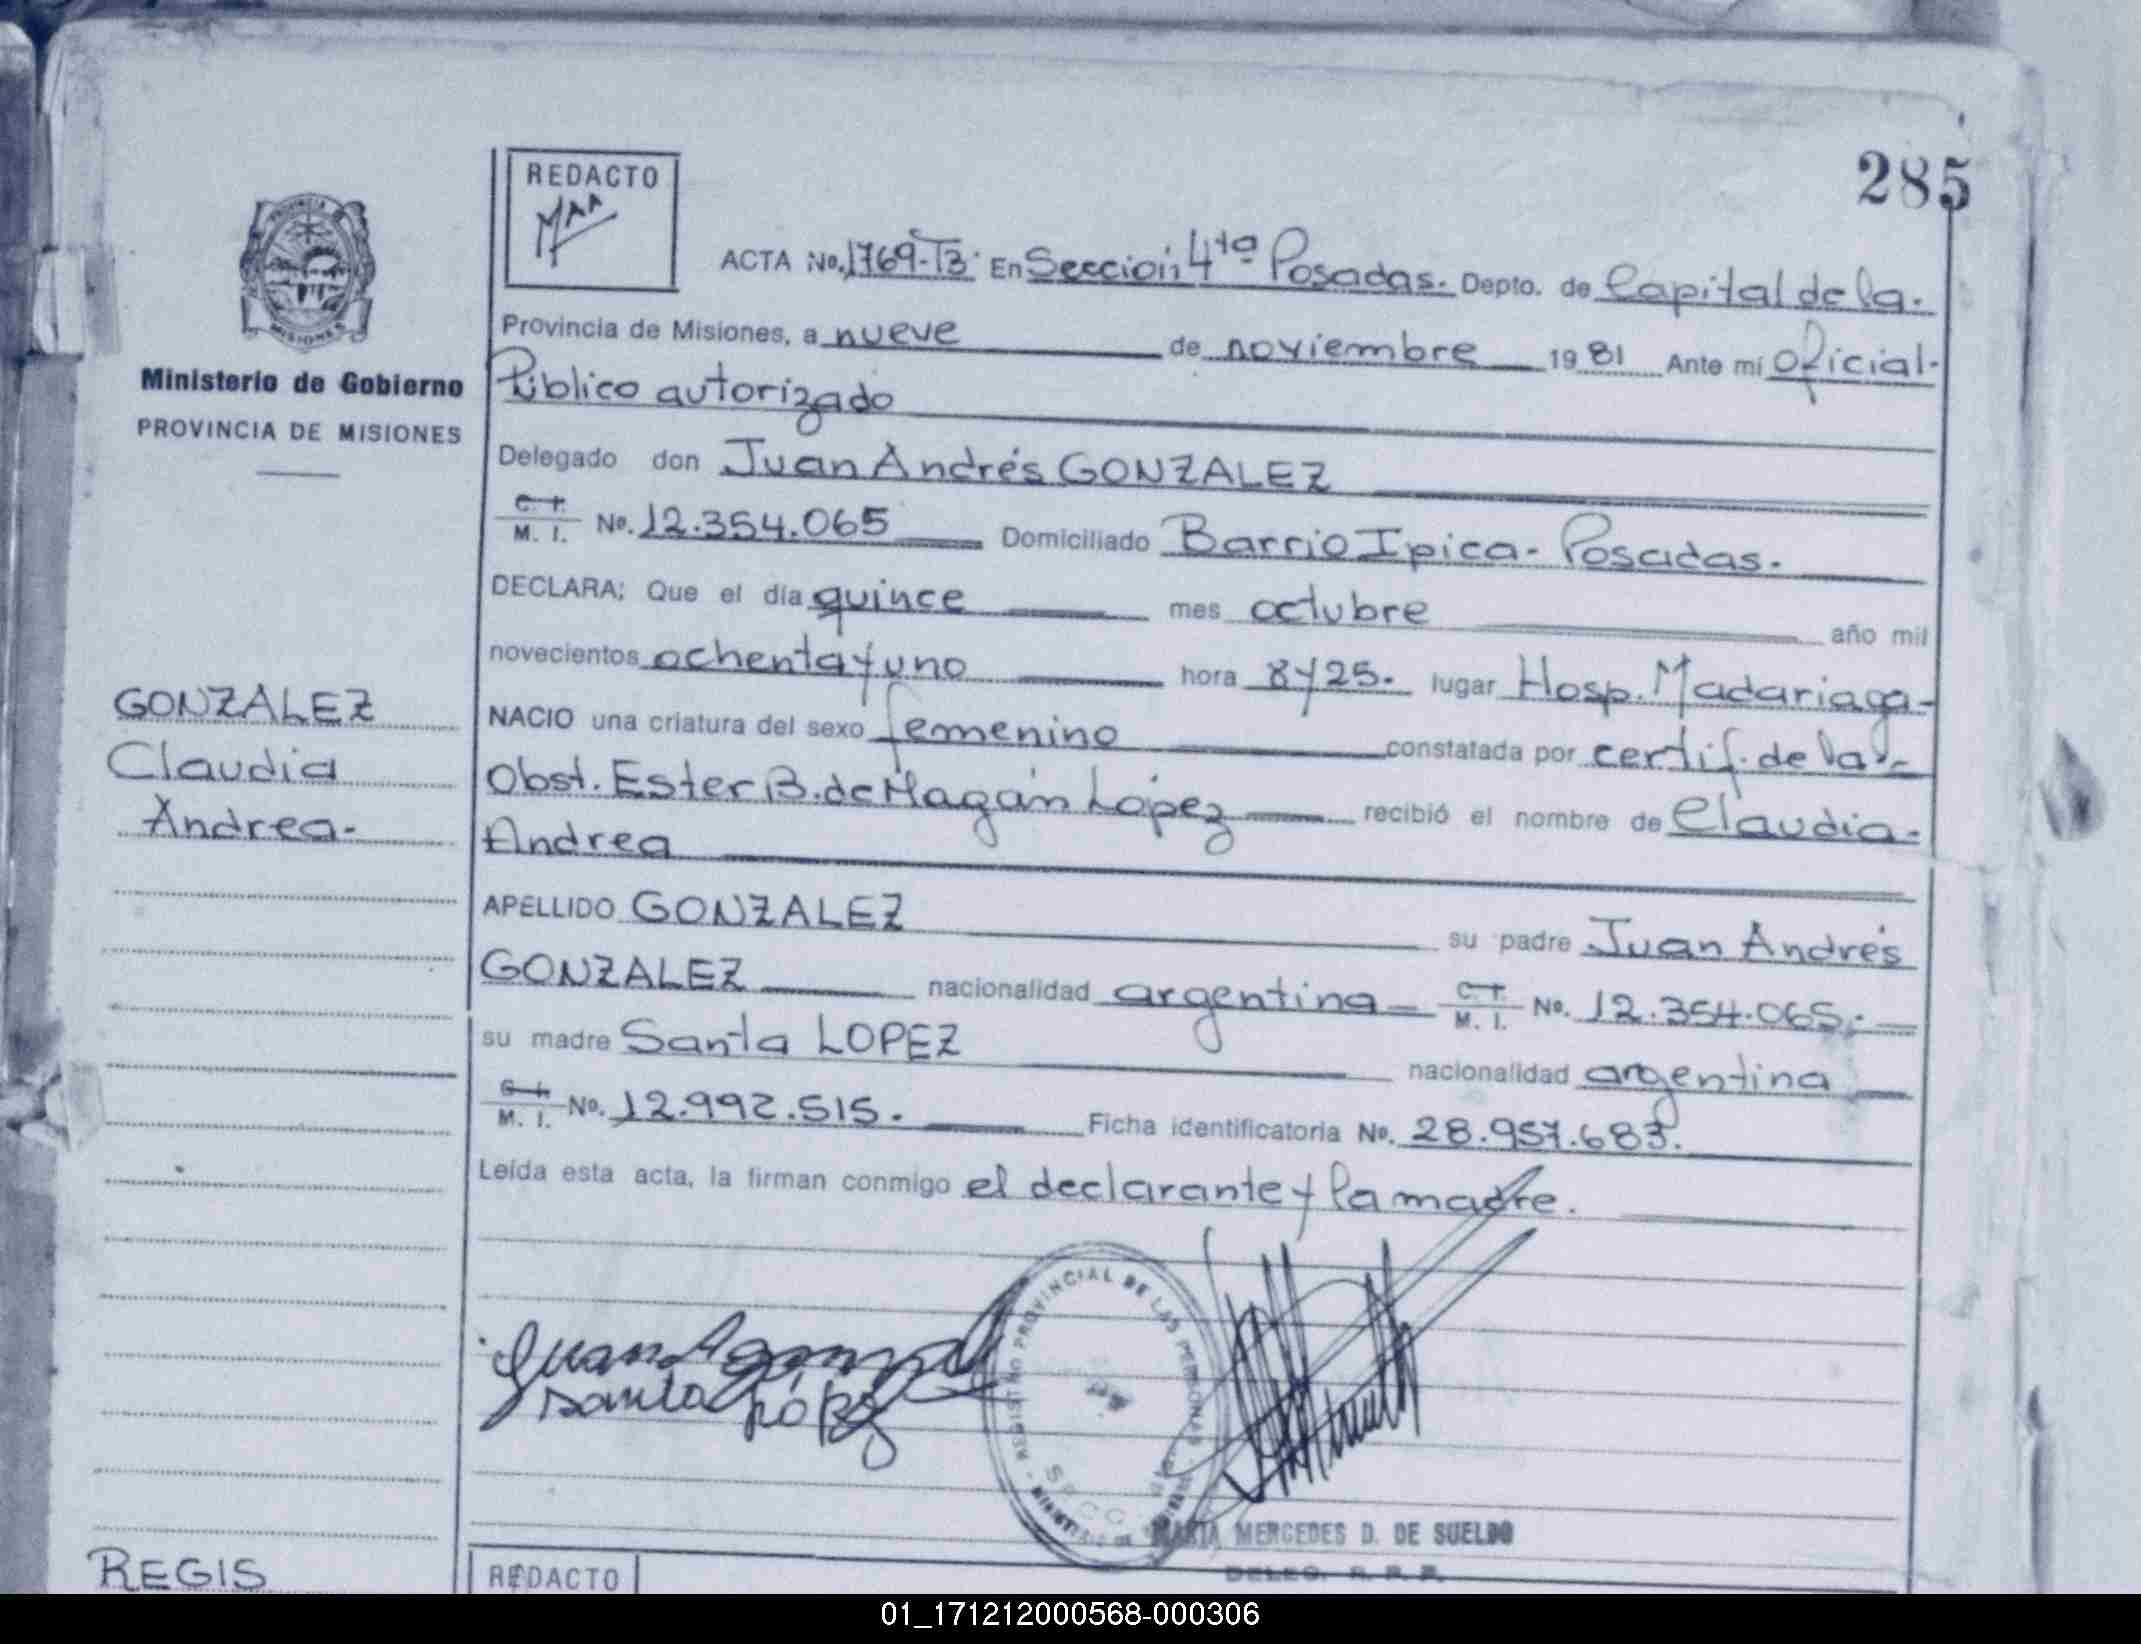 285
REDACTO
ACTA No. 1769-T3. En Sección 4ta Posadas. Depto. de Capital de la.
Provincia de Misiones, a nueve de noviembre 1981 Ante mí oficial.
Público autorizado
Ministerio de Gobierno
PROVINCIA DE MISIONES
Delegado don Juan Andrés GONZALEZ
C. I. M. I. No. 12.354.065 Domiciliado Barrio Ipica - Posadas.
DECLARA; Que el día quince mes octubre año mil
novecientos ochenta y uno hora 8 y 25. lugar Hosp. Madariaga-
NACIO una criatura del sexo femenino constatada por certif. de la-
Obst. Ester B. de Magán López recibió el nombre de Claudia-
Andrea
GONZALEZ
Claudia
Andrea-
APELLIDO GONZALEZ su padre Juan Andrés
GONZALEZ nacionalidad argentina C. I. M. I. No. 12.354.065.-
su madre Santa LOPEZ nacionalidad argentina
C. I. M. I. No. 12.992.515. Ficha identificatoria No. 28.957.683.
Leída esta acta, la firman conmigo el declarante y la madre.
REGISTRO PROVINCIAL DE LAS PERSONAS
Santa López
MARTA MERCEDES D. DE SUELDO
DELEG. R. P. P.
REGIS
REDACTO
01_171212000568-000306